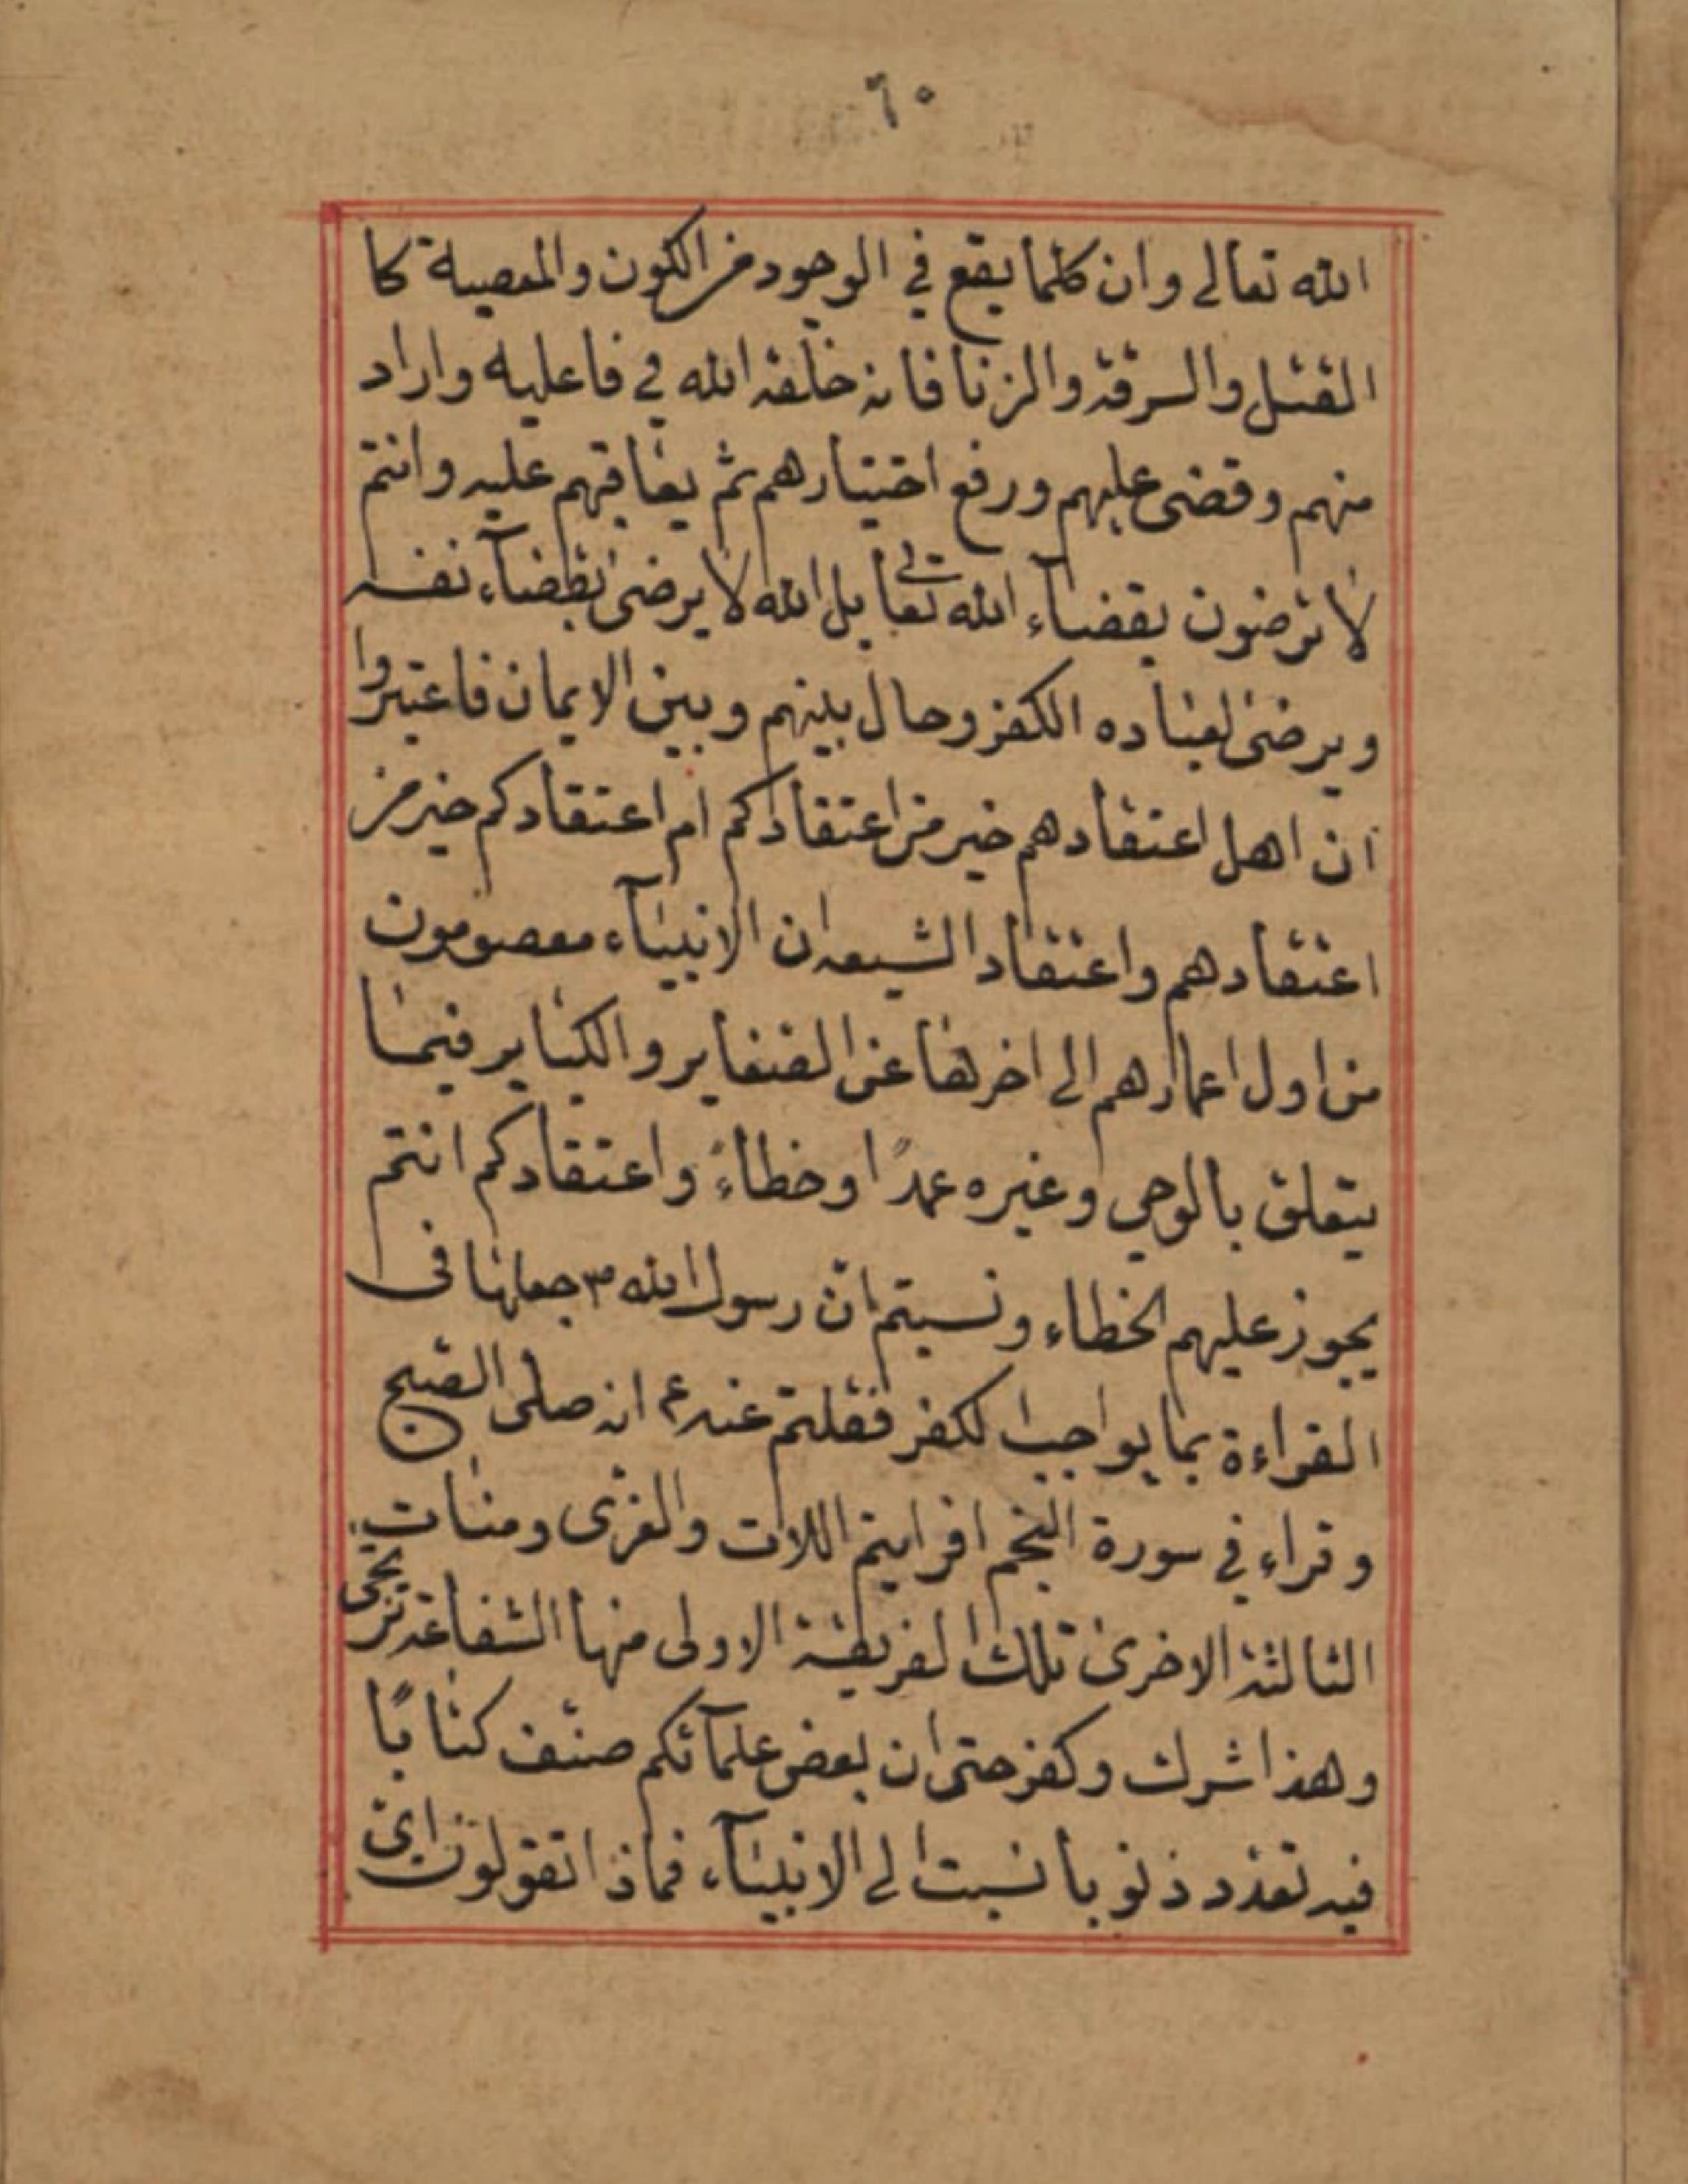 ٦٠
الله تعالى وان كلما يقع في الوجود من الكون والمعصية كا
القتل والسرقة والزنا فانه خلقه الله في فاعليه واراد
منهم وقضى عليهم ورفع اختيارهم ثم يعاقبهم عليه وانتم
لا ترضون بقضاء الله تعالى بل الله لا يرضى بقضاء نفسه
ويرضى لعباده الكفر وحال بينهم وبين الايمان فاعتبروا
ان اهل اعتقادهم خير من اعتقادكم ام اعتقادكم خير من
اعتقادهم واعتقاد الشيعه ان الانبياء معصومون
من اول اعمارهم الى اخرها عن الصغاير والكباير فيما
يتعلق بالوحي وغيره عمدًا او خطاءً واعتقادكم انتم
يجوز عليهم الخطاء ونسبتم ان رسول الله ص جعلها في
القراءة بما يواجب الكفر فقلتم عنه ع انه صلى الصبح
وقراء في سورة النجم افرايتم اللات والعزى ومنات
الثالثة الاخرى تلك الغريقة الاولى منها الشفاعة ترتجى
وهذا شرك وكفر حتى ان بعض علمآئكم صنف كتابًا
فيه تعدد ذنوبا نسبت الى الانبيآء فماذا تقولون اي